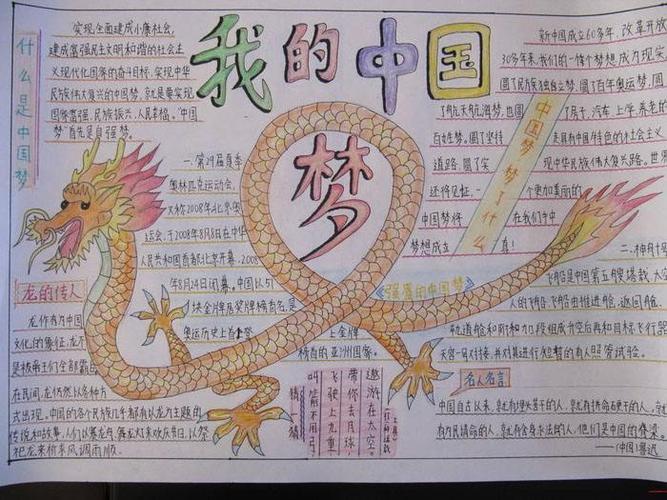 我的中国
梦
什么是中国梦
实现全面建成小康社会,
建成富强民主文明和谐的社会主
义现代化国家的奋斗目标,实现中华
民族伟大复兴的中国梦,就是要实现
国家富强、民族振兴、人民幸福。"中国
梦"首先是自强梦。
一.第29届夏季
奥林匹克运动会,
又称2008年北京奥
运会,于2008年8月8日在中华
人民共和国首都北京开幕,2008
年8月24日闭幕。中国以51
块金牌居奖牌榜首名,是
奥运历史上首个
上金牌
榜首的亚洲国家。
新中国成立60多年,改革开放
30多年来,我们的一件个梦想成为现实
圆了民族独立梦,圆了百年奥运梦,圆
了航天航海梦,也圆
了房子、汽车、上学、养老
百姓梦。圆了坚持
走具有中国特色的社会主义
道路,圆了实
现中华民族伟大复兴路。世
还将见证,一
个更加美丽的
中国梦将
在我们手中
梦想成立
真!
中国梦梦了什么
《强盛的中国梦》
二.神舟十
飞船是中国第五艘载
人的飞船,飞船由推进舱、返回舱、
轨道舱和附加段组成。升空后再和目标飞行器
天宫一号对接,并对其进行短暂的有人照管试验。
龙的传人
龙作为中国
文化的象征,龙不
是被帝王们全部霸
在民间,龙仍然以各种方
式出现。中国的各个民族几乎都有以龙为主题的
传说和故事,人们以赛龙舟、舞龙灯来欢庆节日,以祭
祀龙来祈求风调雨顺。
猜猜
遨游在太空。
带你去月球,
飞驶上九重
叫箭不用弓,
名人名言
中国自古以来,就有埋头苦干的人,就有拼命硬干的人,就
有为民请命的人,就有舍身求法的人,他们是中国的脊梁。
——(中国)鲁迅